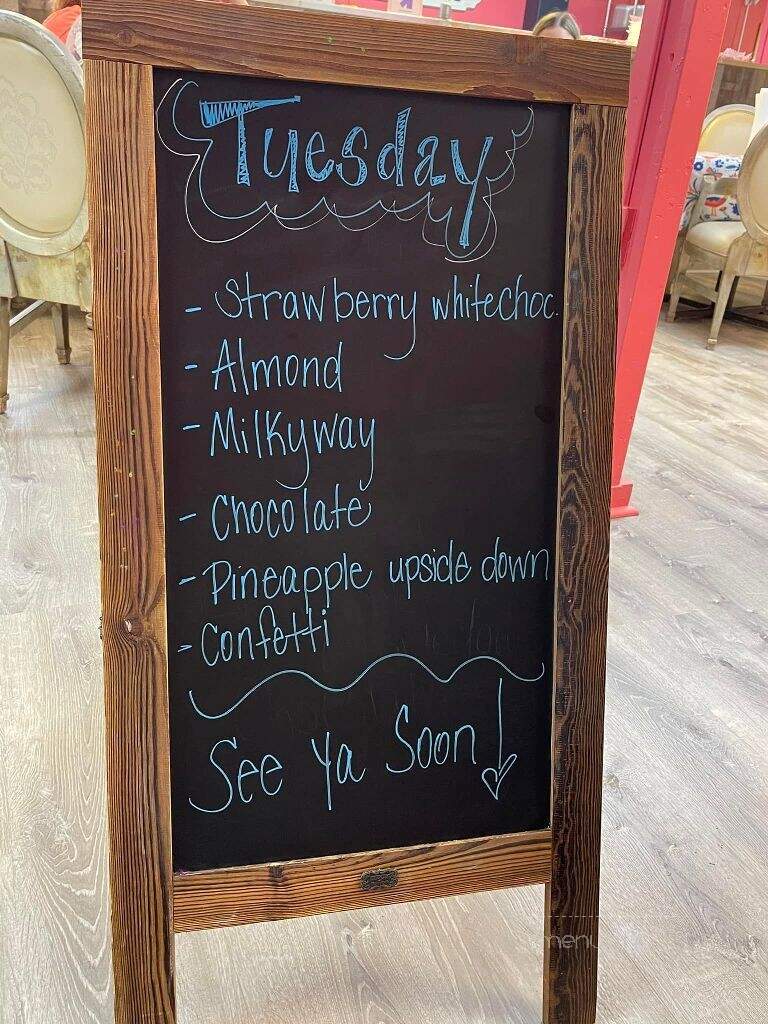 Tuesday
- Strawberry whitechoc.
- Almond
- Milkyway
- Chocolate
- Pineapple upside down
- Confetti
See Ya Soon!
menu